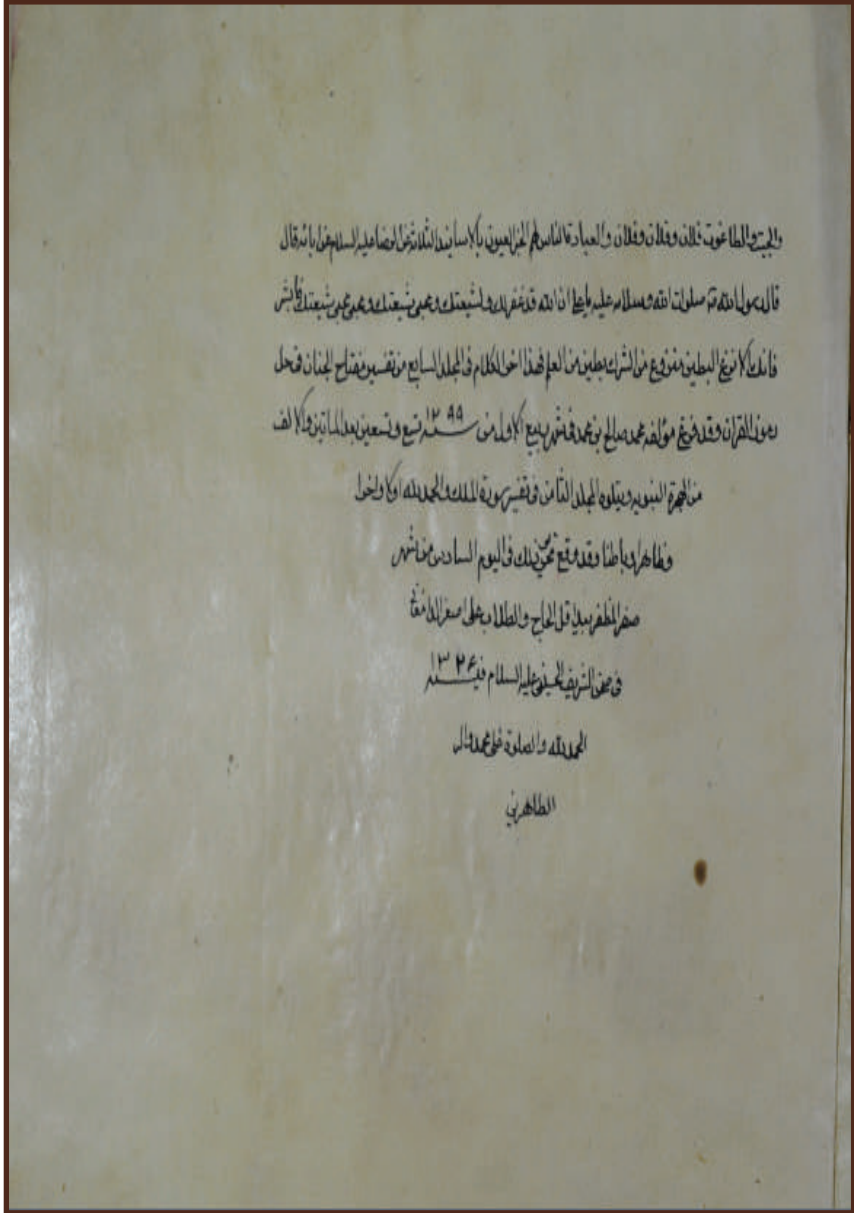 والجبت والطاغوت فلان وفلان وفلان والعبادة الناس لهم الخبر العيون بالاسانيد الثلاثة عن الرضا عليه السلام عن ابائه قال
قال رسول الله صلوات الله وسلامه عليه يا علي ان الله قد غفر لك ولشيعتك ومحبي شيعتك ومحبي محبي شيعتك فابشر
فانك الانزع البطين منزوع من الشرك بطين من العلم فهذا اخر الكلام في المجلد السابع من تفسير مفتاح الجنان في حل
رموز القران وقد فرغ مؤلفه محمد صالح بن محمد في شهر ربيع الاول من سنة ١٢٩٩ تسع وتسعين بعد الماتين والالف
من الهجرة النبويه ويتلوه المجلد الثامن في تفسير سورة الملك والحمد لله اولا واخرا
وظاهرا وباطنا وقد وقع تحرير ذلك في اليوم السادس من شهر
صفر المظفر بيد اقل الحاج والطلاب على اصغر
في صحن الشريف الحسيني عليه السلام في سنة ١٣٢٤
الحمد لله والصلوة على محمد واله
الطاهرين